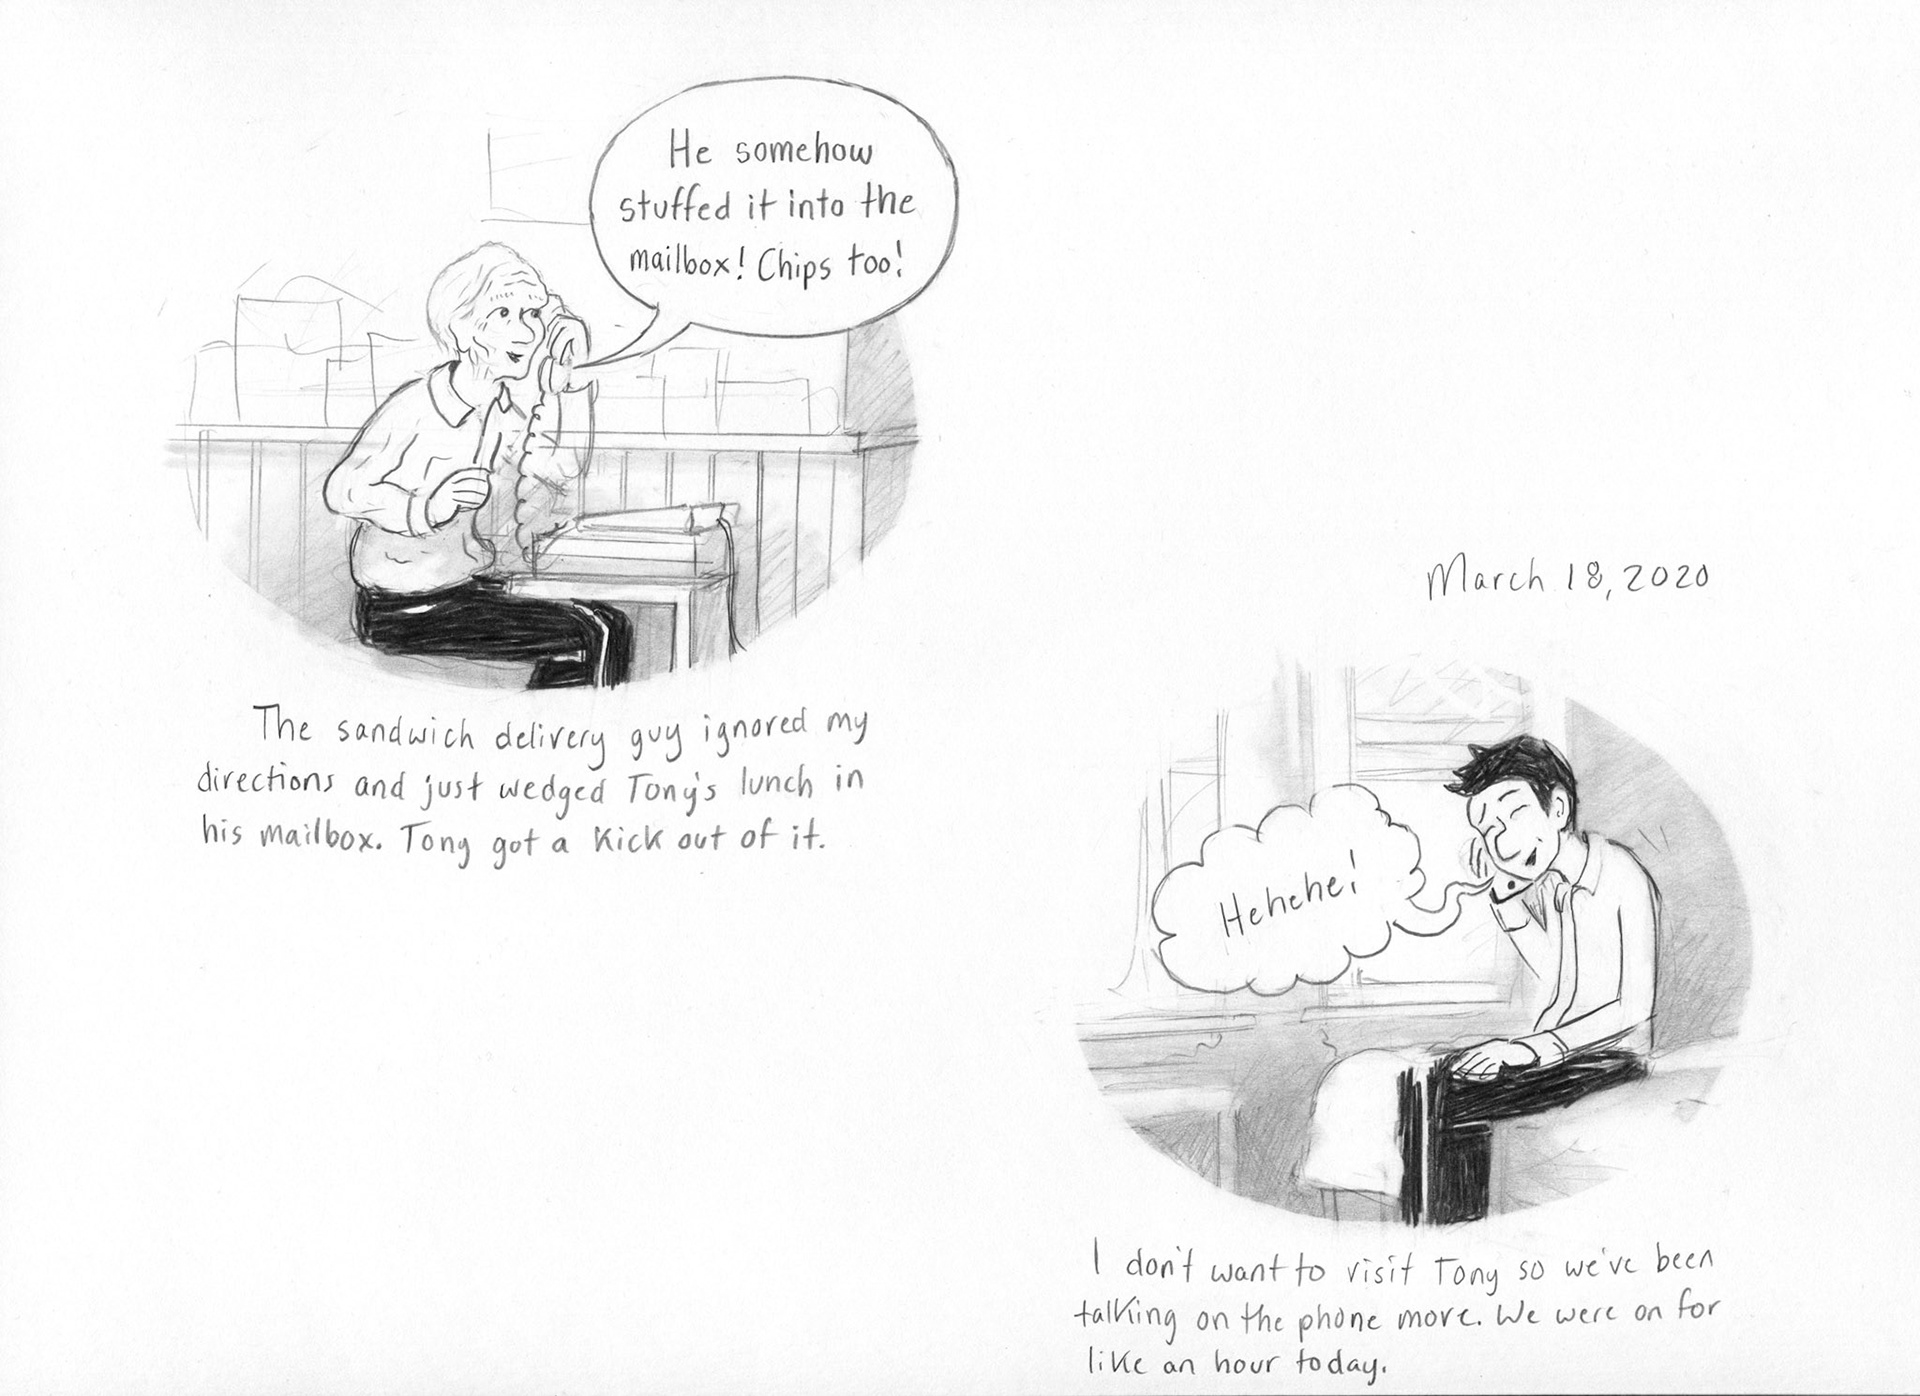 He somehow
stuffed it into the
mailbox! Chips too!
The sandwich delivery guy ignored my
directions and just wedged Tony's lunch in
his mailbox. Tony got a kick out of it.
March 18, 2020
Hehehe!
I don't want to visit Tony so we've been
talking on the phone more. We were on for
like an hour today.